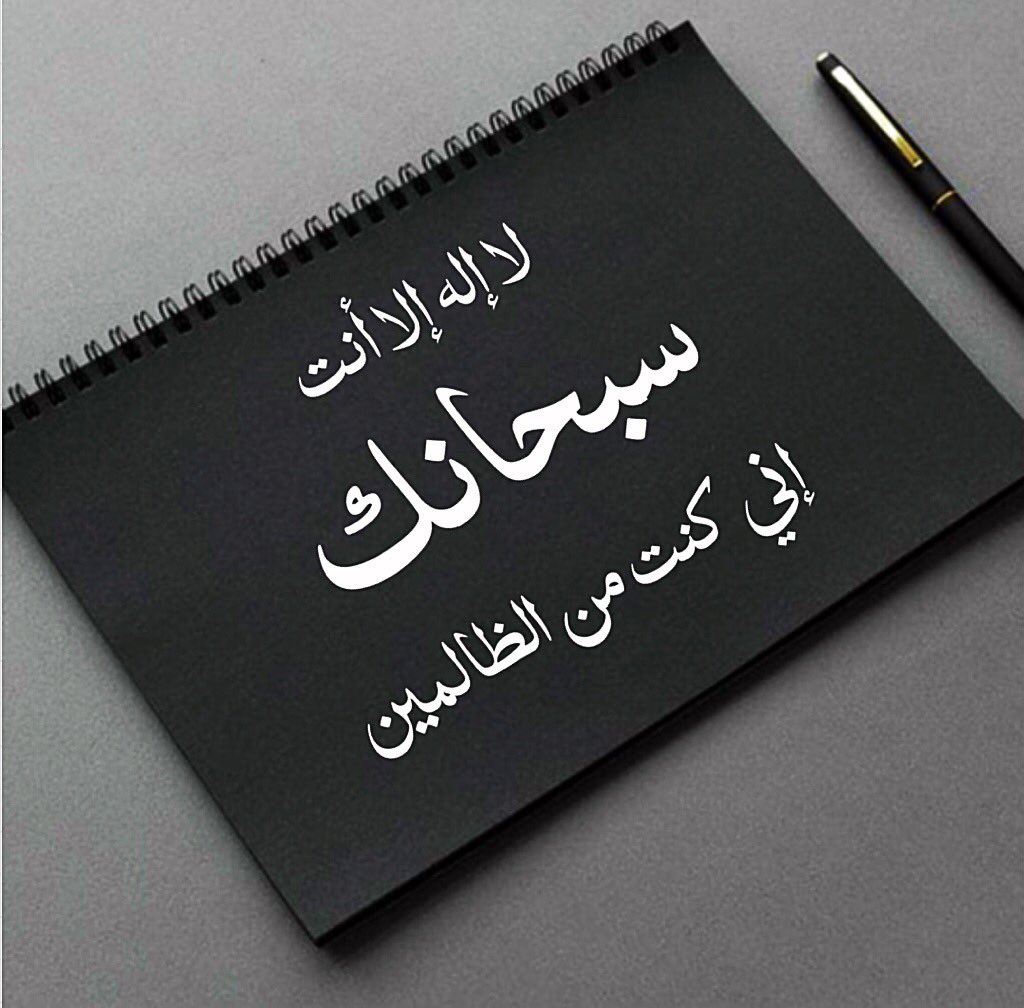 لا إله إلا أنت
سبحانك
إني كنت من الظالمين